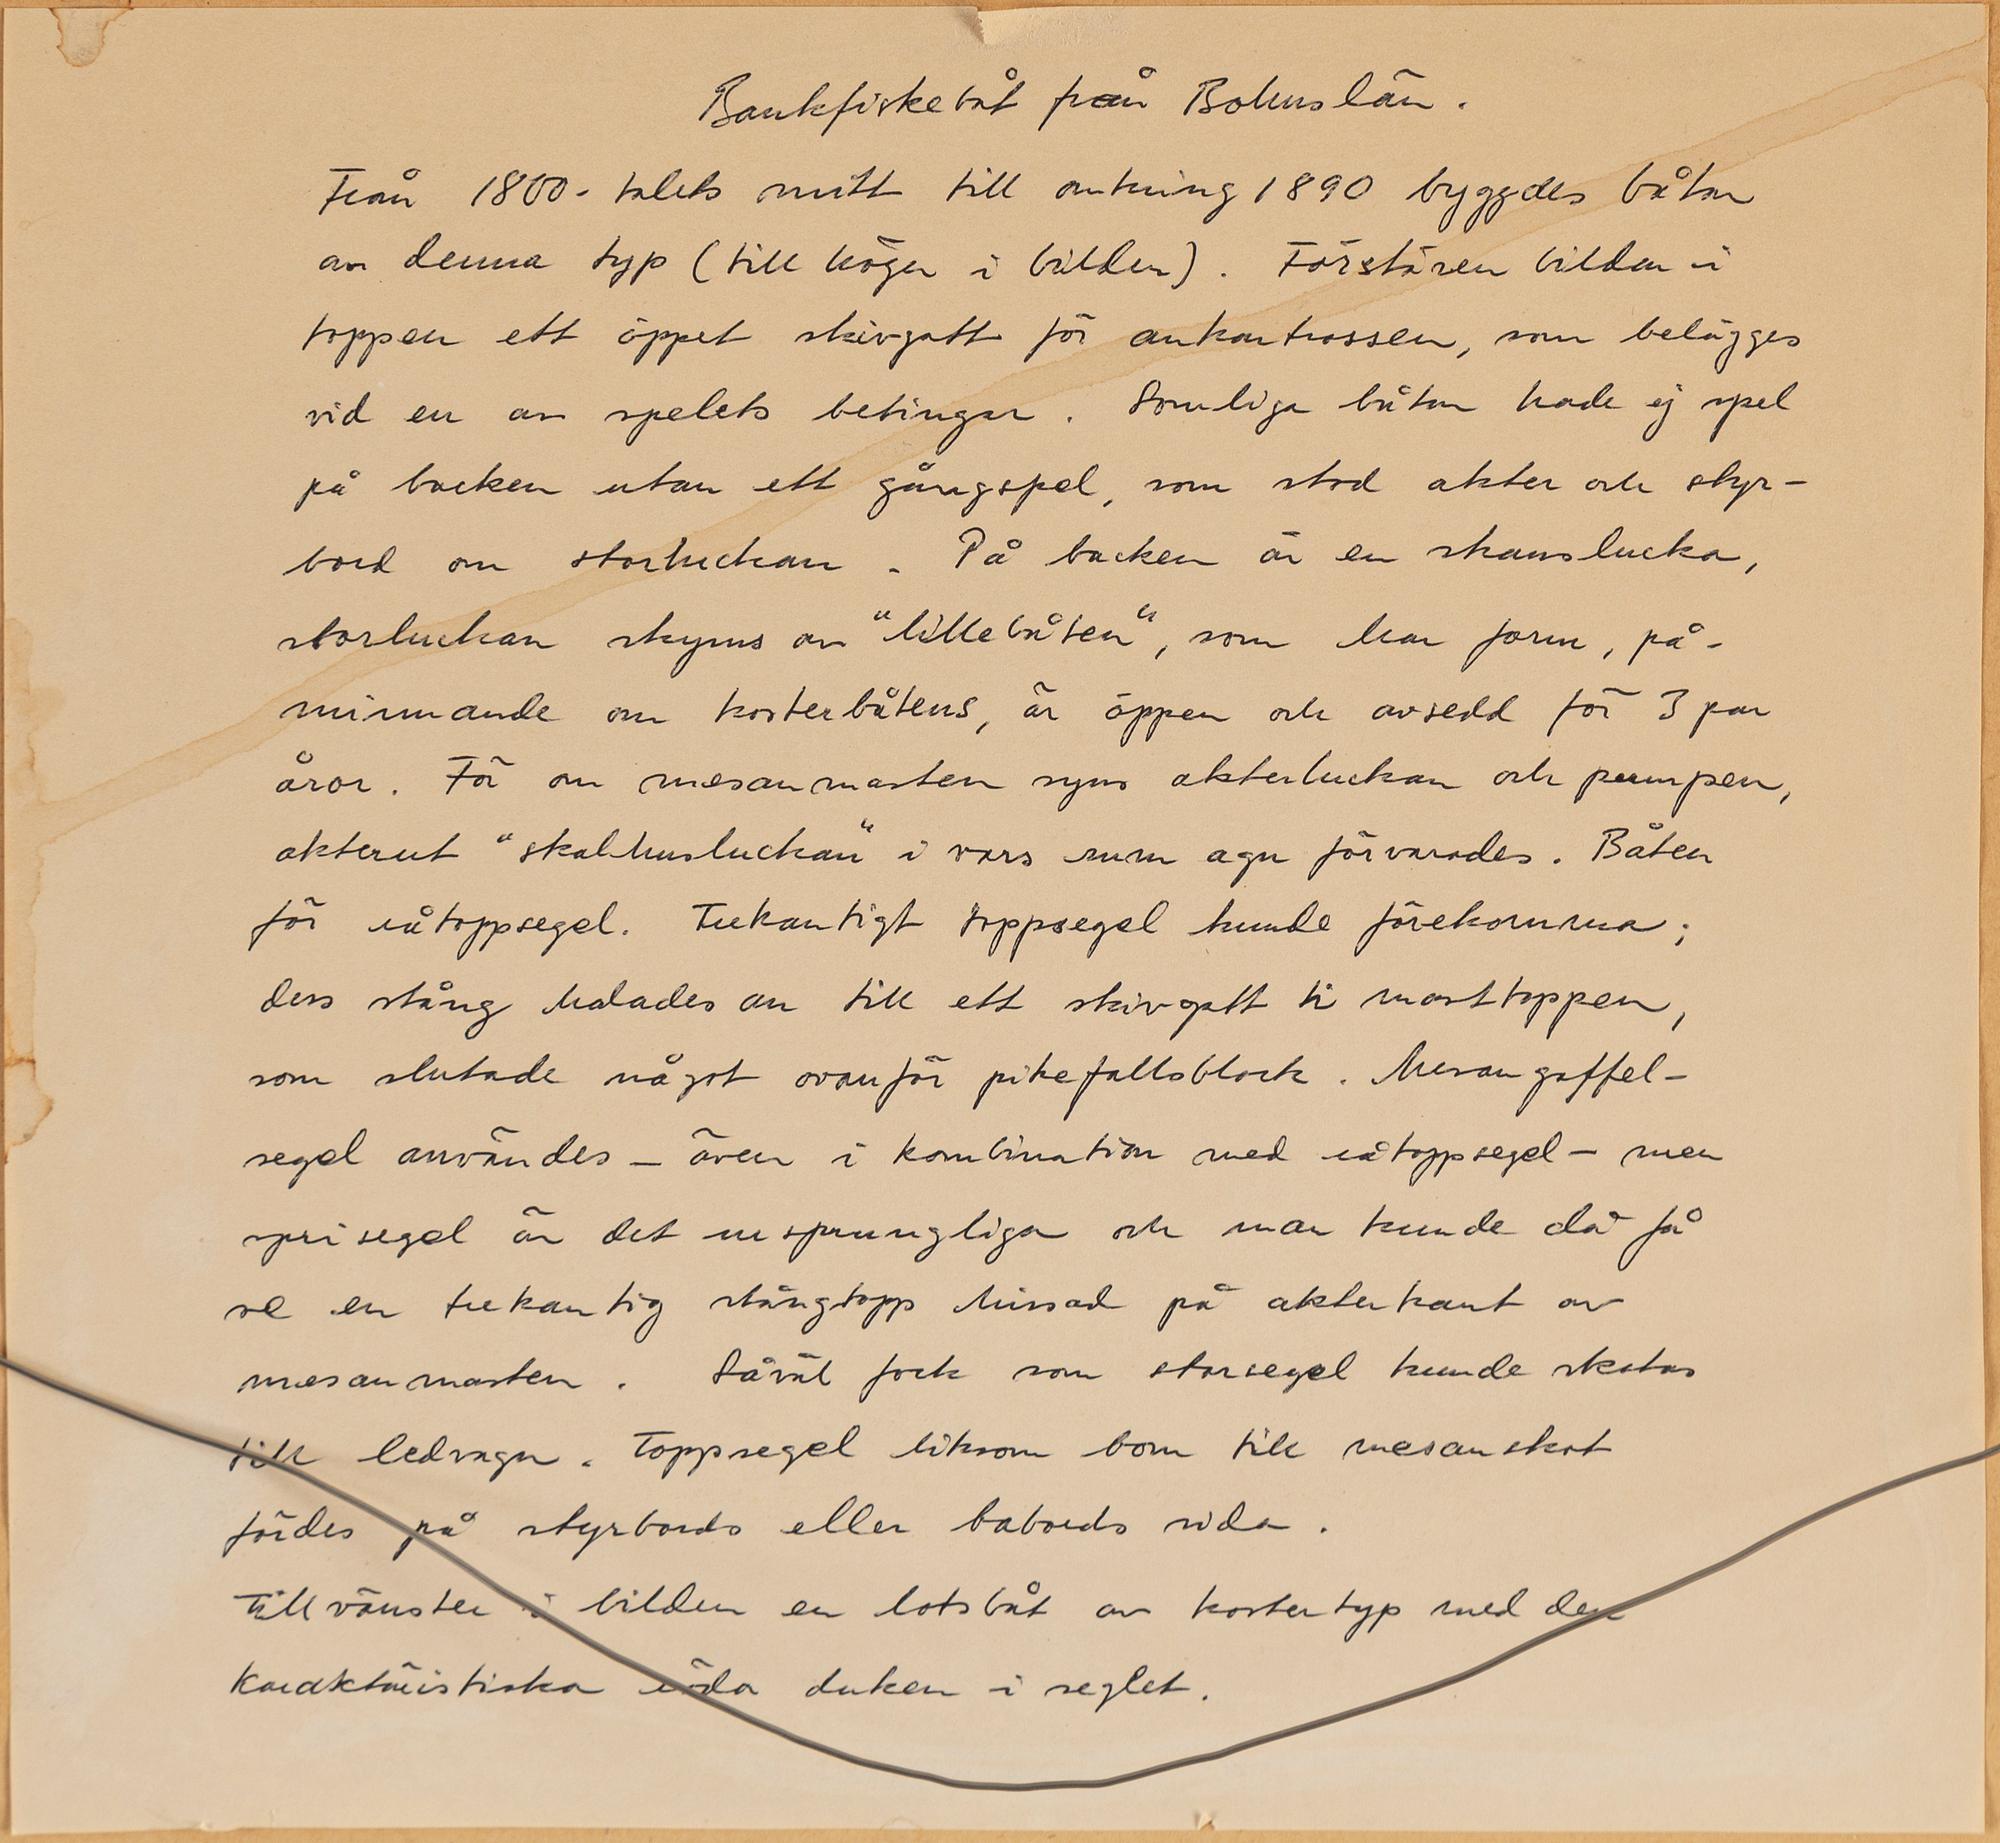 Bankfiskebåt från Bohuslän.
Från 1800-talets mitt till omkring 1890 byggdes båtar
av denna typ (till höger i bilden). Förstäven bildar i
toppen ett öppet skivgatt för ankartrossen, som belägges
vid en av spelets betingar. Somliga båtar hade ej spel
på backen utan ett gångspel, som stod akter och styr-
bord om storluckan. På backen är en skanslucka,
storluckan skyms av "lillebåten", som har form, på-
minnande om kosterbåtens, är öppen och avsedd för 3 par
åror. För om mesanmasten syns akterluckan och pumpen,
akterut "skalhusluckan" i vars rum agn förvarades. Båten
för råtoppsegel. Trekantigt toppsegel kunde förekomma;
dess stång halades an till ett skivgatt i masttoppen,
som slutade något ovanför pikefallsblock. Mesangaffel-
segel användes – även i kombination med råtoppsegel – men
sprisegel är det ursprungliga och man kunde då få
se en trekantig stångtopp hissad på akterkant av
mesanmasten. Såväl fock som storsegel kunde skotas
till ledvagn. Toppsegel liksom bom till mesanskot
fördes på styrbords eller babords sida.
Till vänster i bilden en lotsbåt av kostertyp med den
karaktäristiska röda duken i seglet.